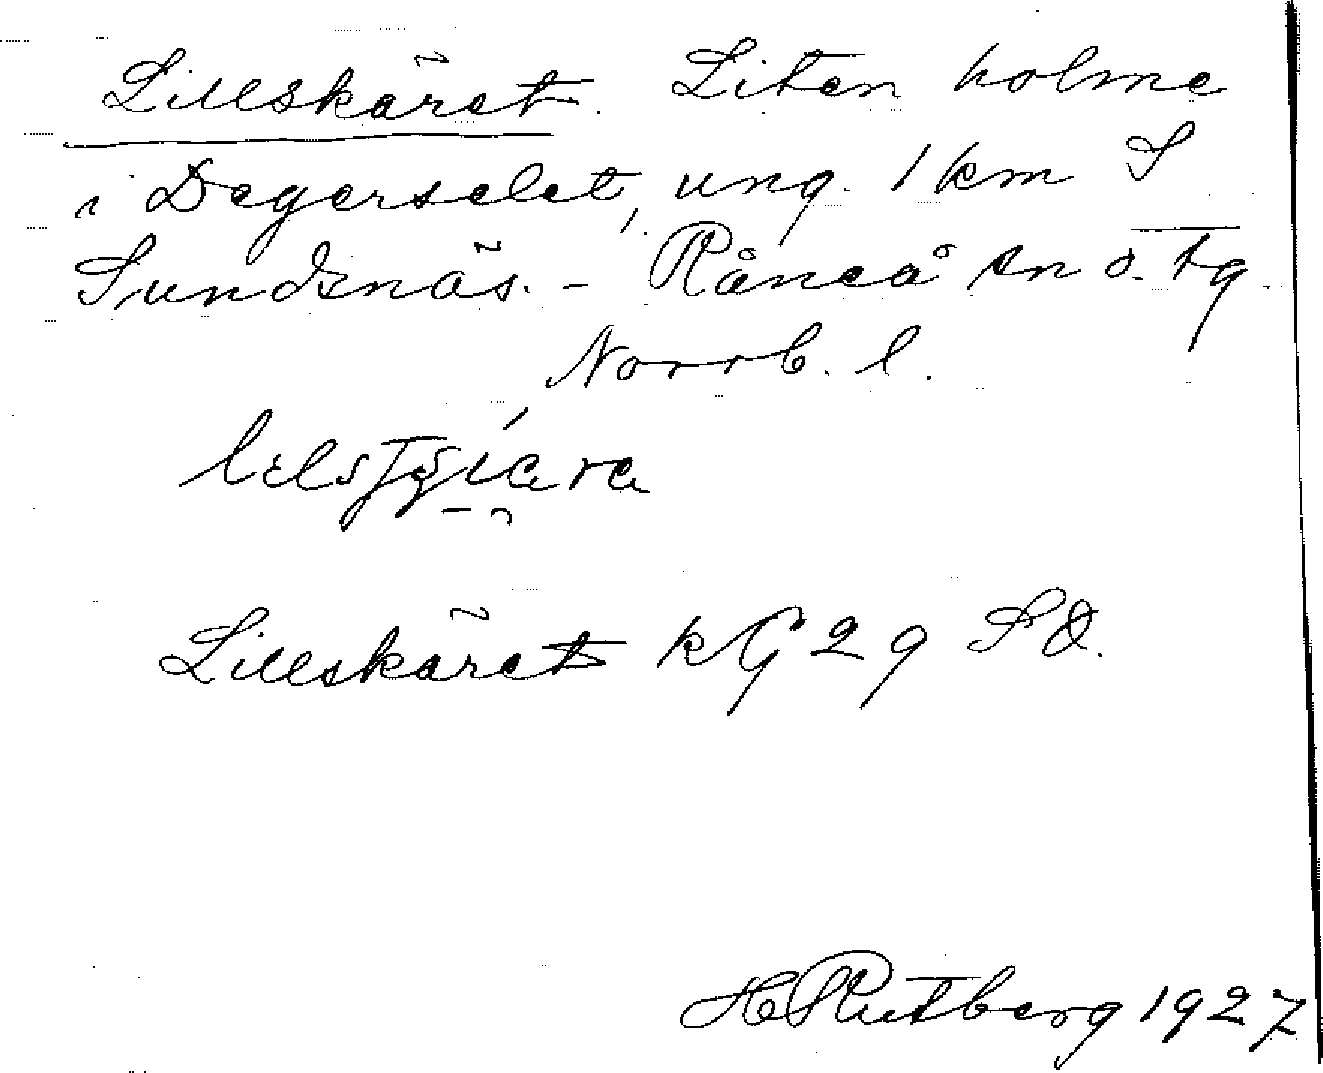 Lillskäret. Liten holme
i Degerselet, ung. 1 km S
Sundsnäs. - Råneå sn o. tg.
Norrb. l.
Lillskäret kG29 SO.
H Rutberg 1927